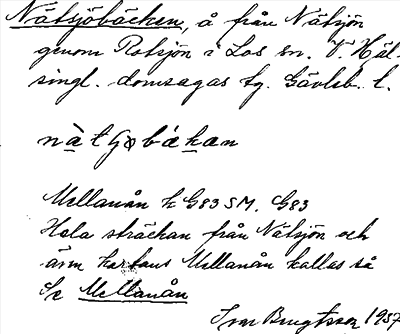 Nätsjöbäcken, å från Nätsjön
genom Rotsjön i Los sn. V. Häl-
singl. domsagas tg. Gävleb. l.
nàtʃobákan
Mellanån k G83 SM. G83
Hela sträckan från Nätsjön och
även kallas Mellanån kallas så
Se Mellanån
Ivar Bengtsson 1957